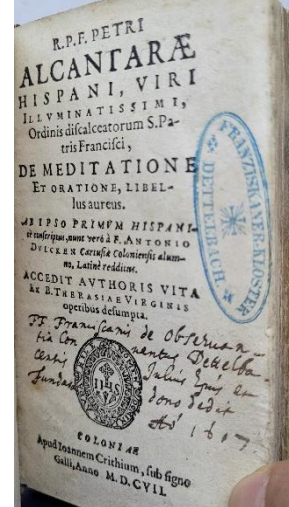 R. P. F. PETRI
ALCANTARÆ
HISPANI, VIRI
ILLVMINATISSIMI,
Ordinis discalceatorum S. Pa-
tris Francisci,
DE MEDITATIONE
ET ORATIONE, LIBEL-
lus aureus.
AB IPSO PRIMVM HISPANI-
cè conscriptus, nunc verò à F. ANTONIO
DVLCKEN Cartusiæ Coloniensis alum-
no, Latinè redditus.
ACCEDIT AVTHORIS VITA
EX B. THERASIAE VIRGINIS
operibus desumpta.
FRANZISKANER-KLOSTER
DETTELBACH a. M.
FF. Franciscanis de Observan-
tia Conventus Dettelba-
censis Julius Epis et
fundator dono dedit
Aō 1617
IHS
COLONIÆ
Apud Ioannem Crithium, sub signo
Galli, Anno M.D.CVII.